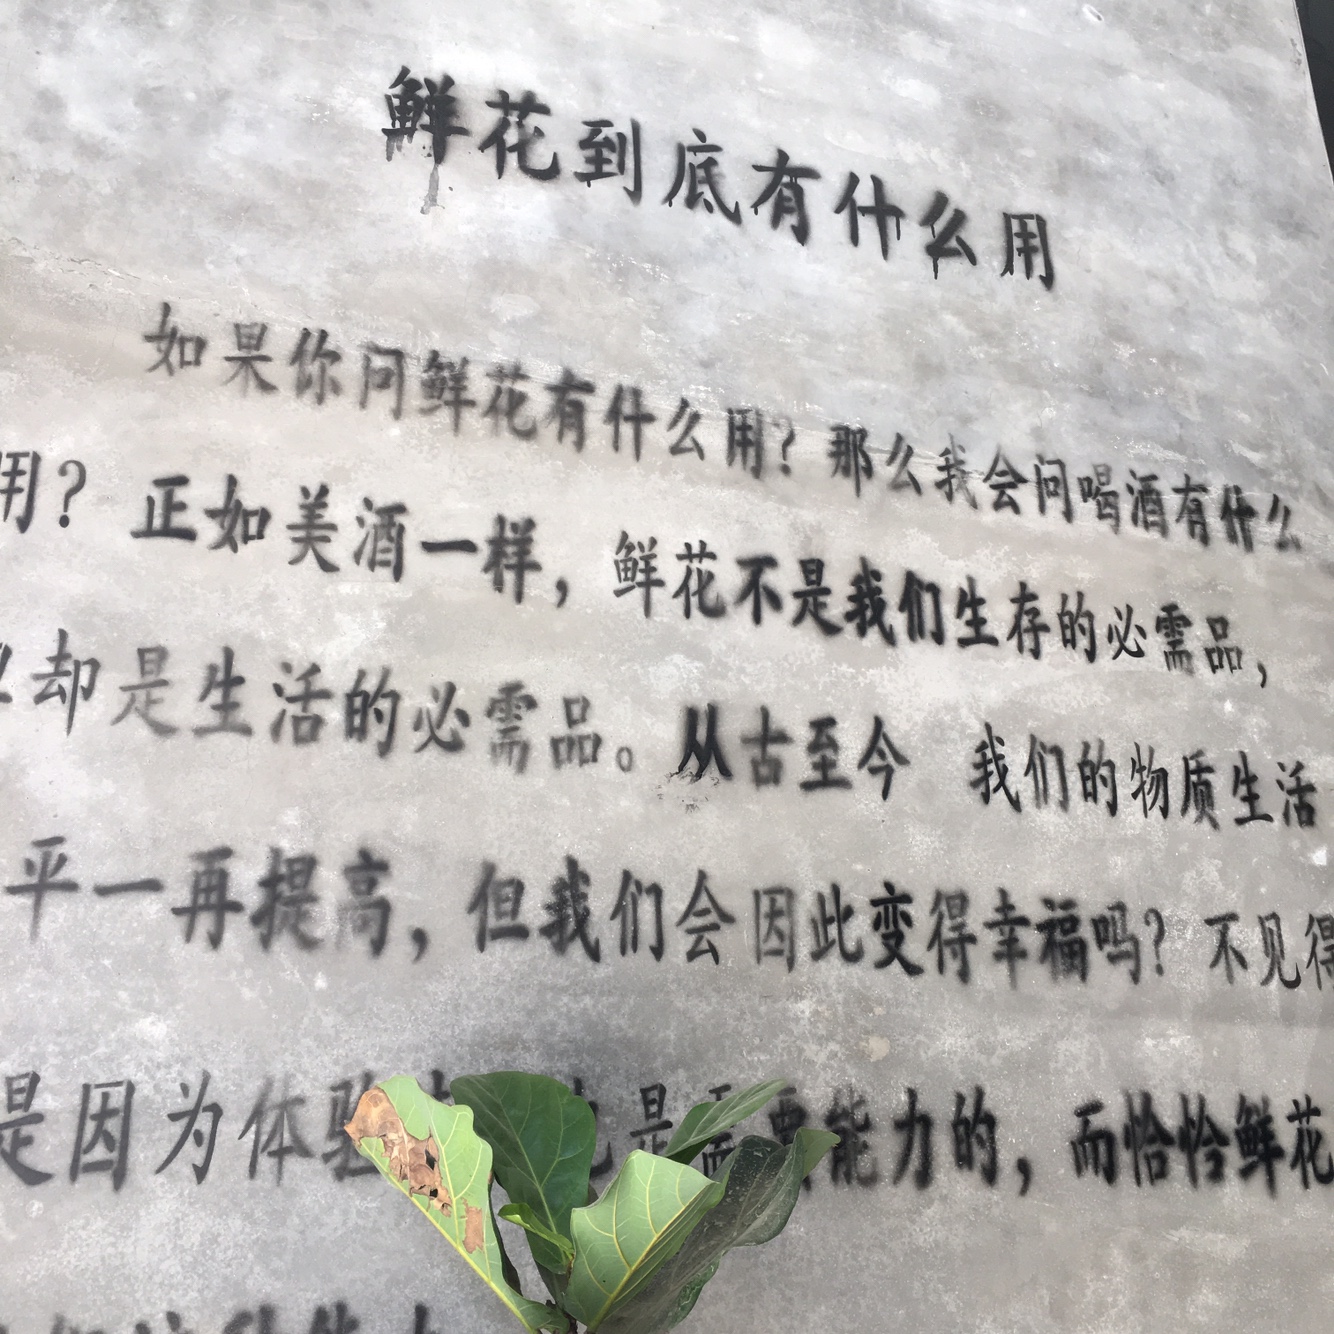 鲜花到底有什么用
如果你问鲜花有什么用？那么我会问喝酒有什么
用？正如美酒一样，鲜花不是我们生存的必需品，
却是生活的必需品。从古至今 我们的物质生活
平一再提高，但我们会因此变得幸福吗？不见得
是因为体验 是需要能力的，而恰恰鲜花